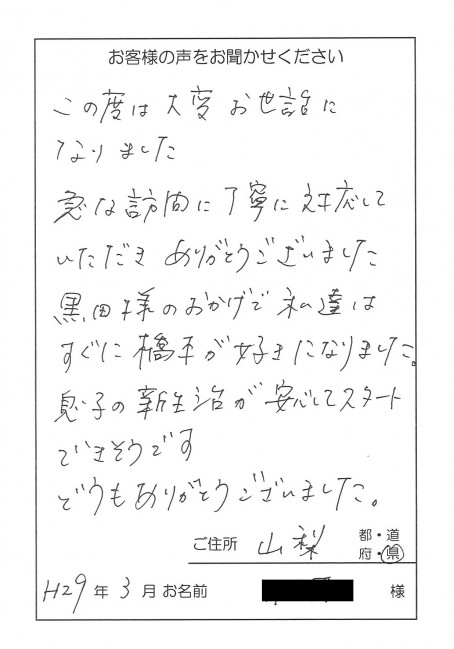 お客様の声をお聞かせください
この度は大変お世話に
なりました
急な訪問に丁寧に対応して
いただき ありがとうございました
黒田様のおかげで私達は
すぐに橋本が好きになりました。
息子の新生活が安心してスタート
できそうです
どうもありがとうございました。
ご住所 山梨 都・道府・県
H29年 3月 お名前 様